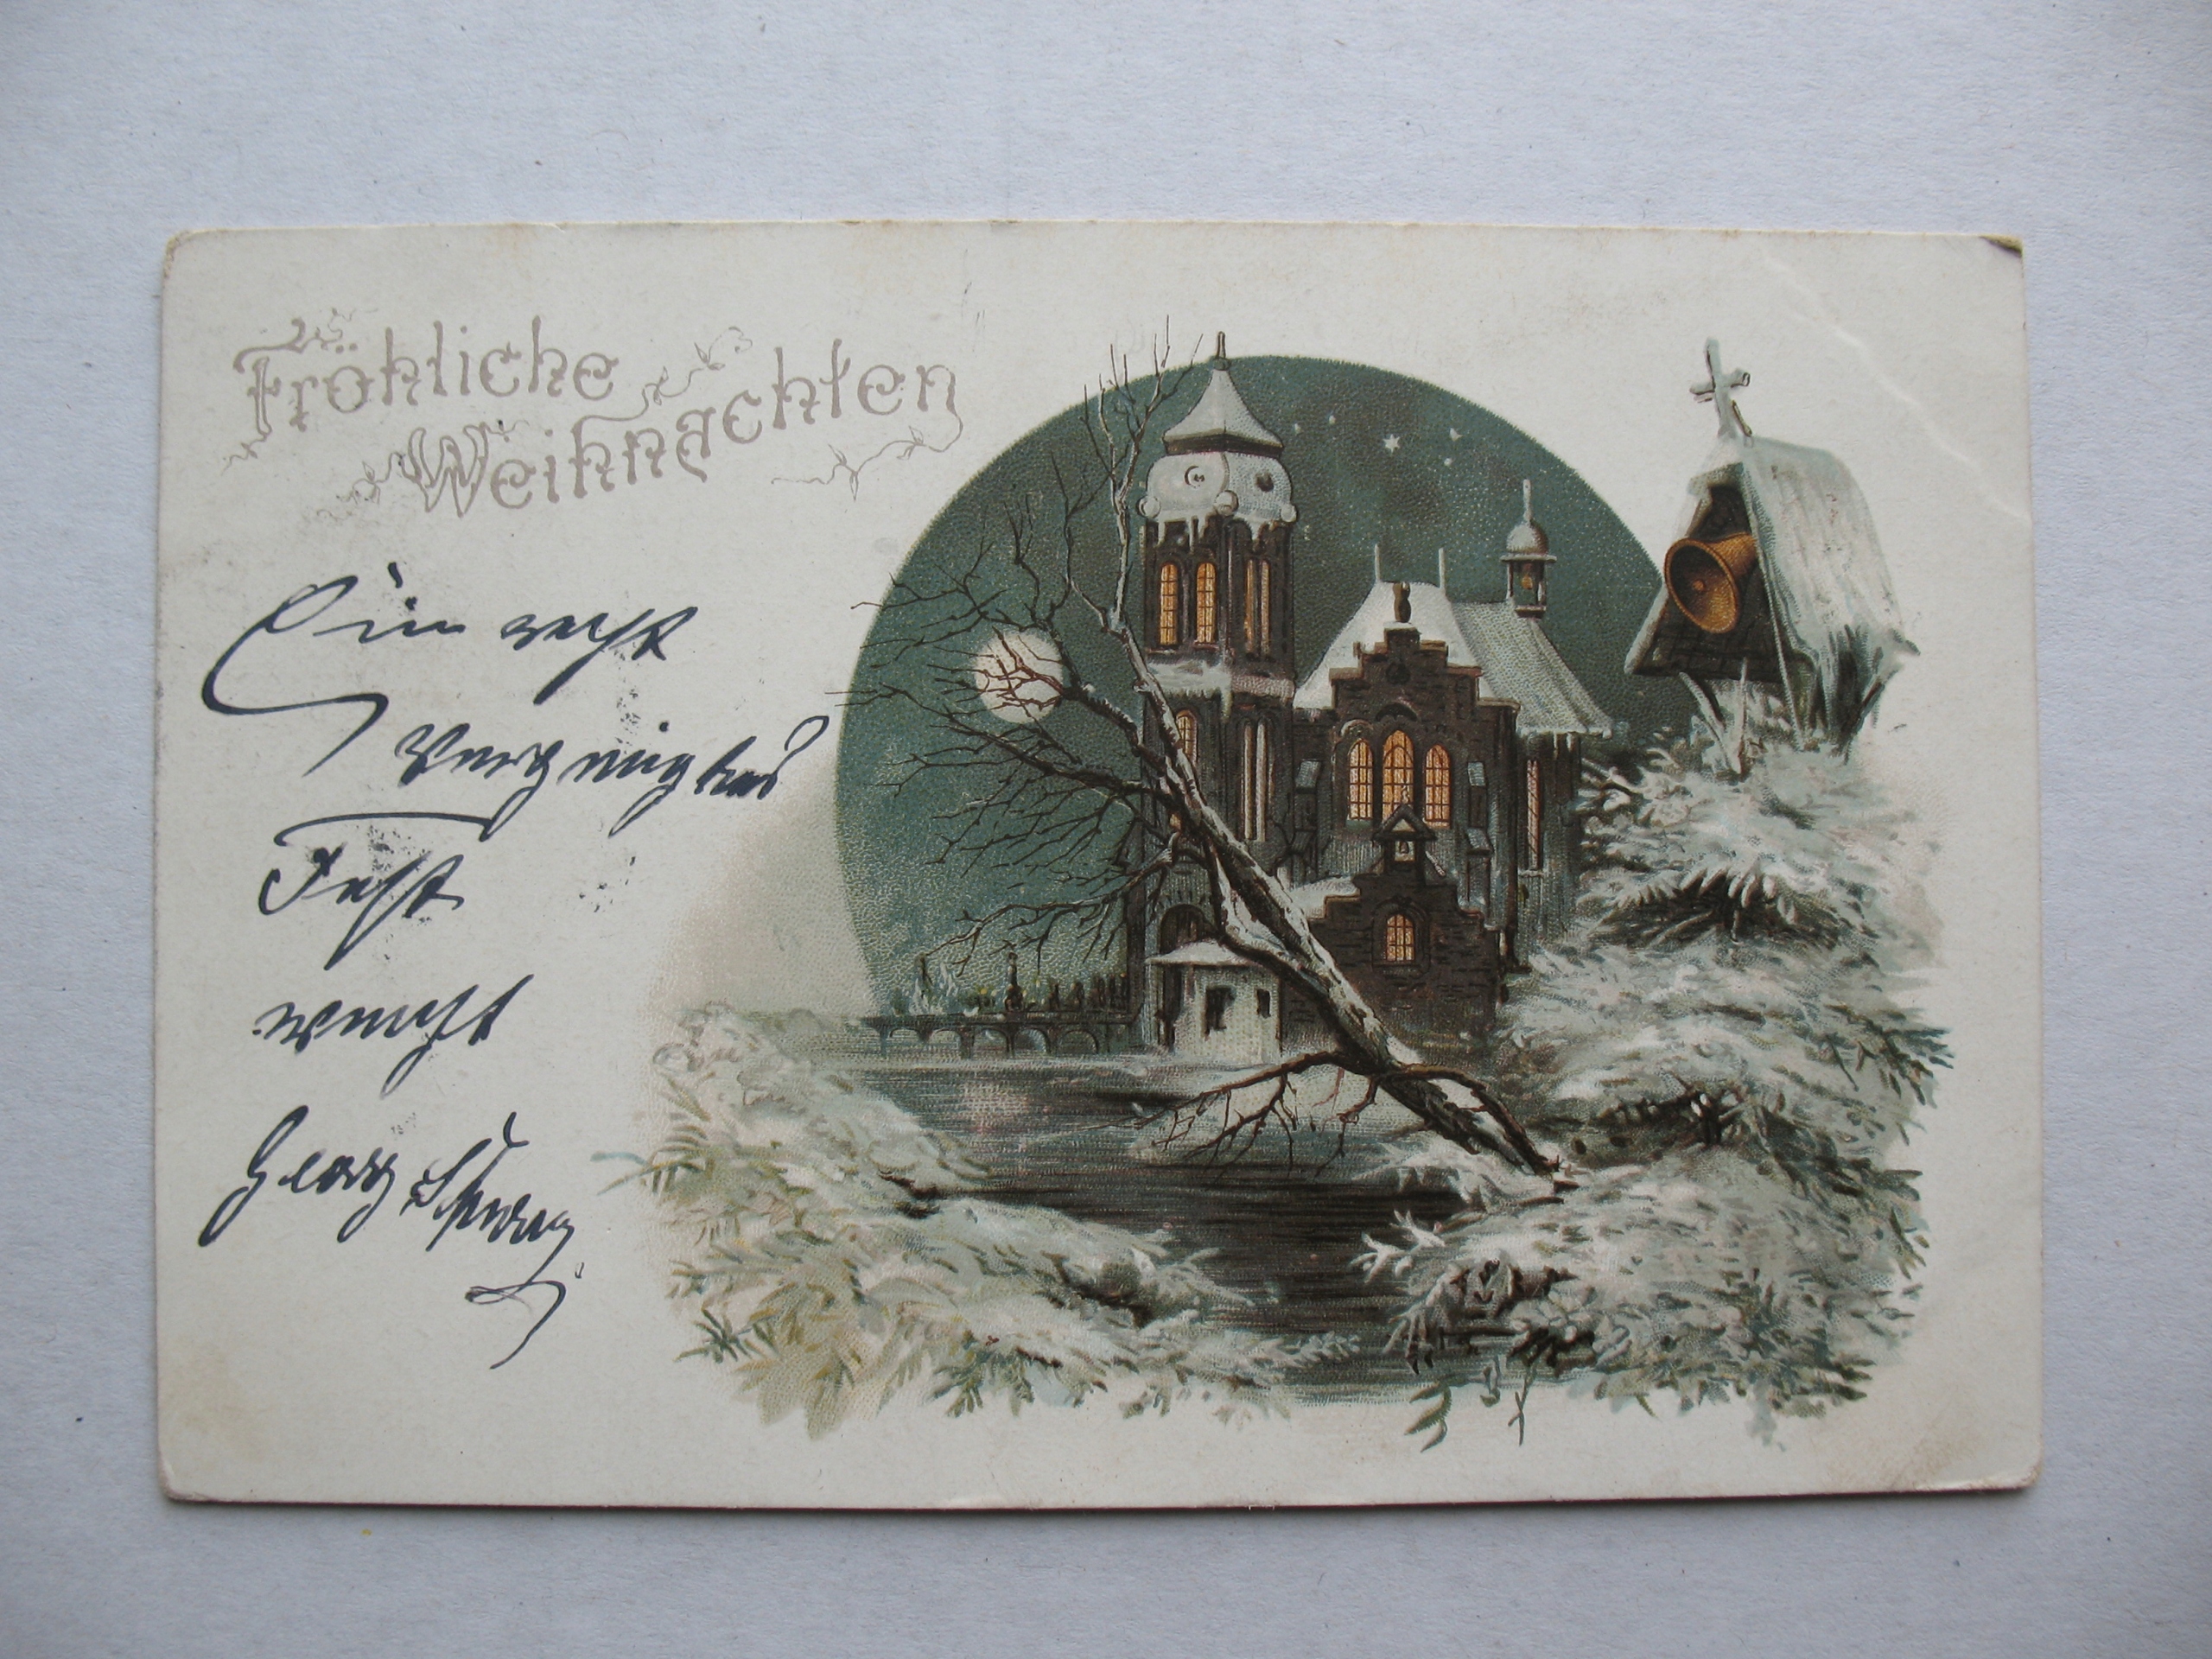 Fröhliche
Weihnachten
Ein recht
vergnigtes
Fest
wünscht
Georg